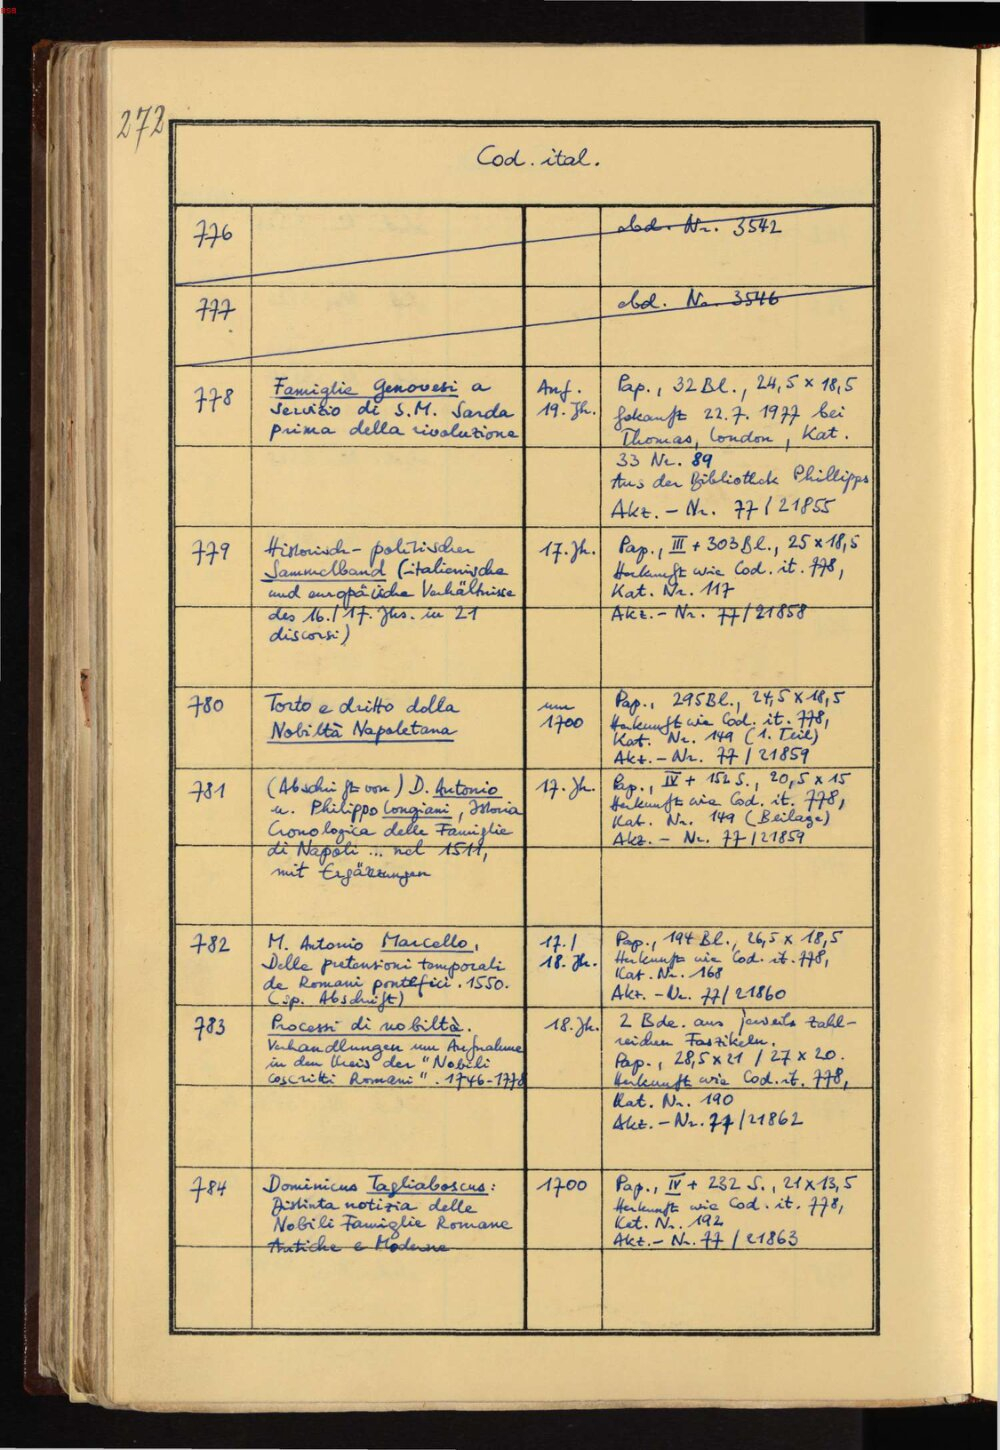 272
Cod. ital.
776
abd. Nr. 3542
777
abd. Nr. 3546
778
Famiglie Genovesi a
servizio di S.M. Sarda
prima della rivoluzione
Anf.
19. Jh.
Pap., 32 Bl., 24,5 x 18,5
gekauft 22.7.1977 bei
Thomas, London, Kat.
33 Nr. 89
Aus der Bibliothek Phillipps
Akz.-Nr. 77/21855
779
Historisch-politischer
Sammelband (italienische
und europäische Verhältnisse
des 16./17. Jhs. in 21
discorsi)
17. Jh.
Pap., III + 303 Bl., 25 x 18,5
Herkunft wie Cod. it. 778,
Kat. Nr. 117
Akz.-Nr. 77/21858
780
Torto e dritto della
Nobiltà Napoletana
um
1700
Pap., 295 Bl., 24,5 x 18,5
Herkunft wie Cod. it. 778,
Kat. Nr. 149 (1. Teil)
Akz.-Nr. 77/21859
781
(Abschrift von) D. Antonio
u. Philippo Longiani, Istoria
Cronologica delle Famiglie
di Napoli ... nel 1511,
mit Ergänzungen
17. Jh.
Pap., IV + 152 S., 20,5 x 15
Herkunft wie Cod. it. 778,
Kat. Nr. 149 (Beilage)
Akz.-Nr. 77/21859
782
M. Antonio Marcello,
Delle pretensioni temporali
de Romani pontefici. 1550.
(sp. Abschrift)
17./
18. Jh.
Pap., 194 Bl., 26,5 x 18,5
Herkunft wie Cod. it. 778,
Kat. Nr. 168
Akz.-Nr. 77/21860
783
Processi di nobiltà.
Verhandlungen um Aufnahme
in den Kreis der "Nobili
coscritti Romani". 1746-1778
18. Jh.
2 Bde. aus jeweils zahl-
reichen Faszikeln.
Pap., 28,5 x 21 / 27 x 20.
Herkunft wie Cod. it. 778,
Kat. Nr. 190
Akz.-Nr. 77/21862
784
Dominicus Tagliaboscus:
Distinta notizia delle
Nobili Famiglie Romane
Antiche e Moderne
1700
Pap., IV + 232 S., 21 x 13,5
Herkunft wie Cod. it. 778,
Kat. Nr. 192
Akz.-Nr. 77/21863